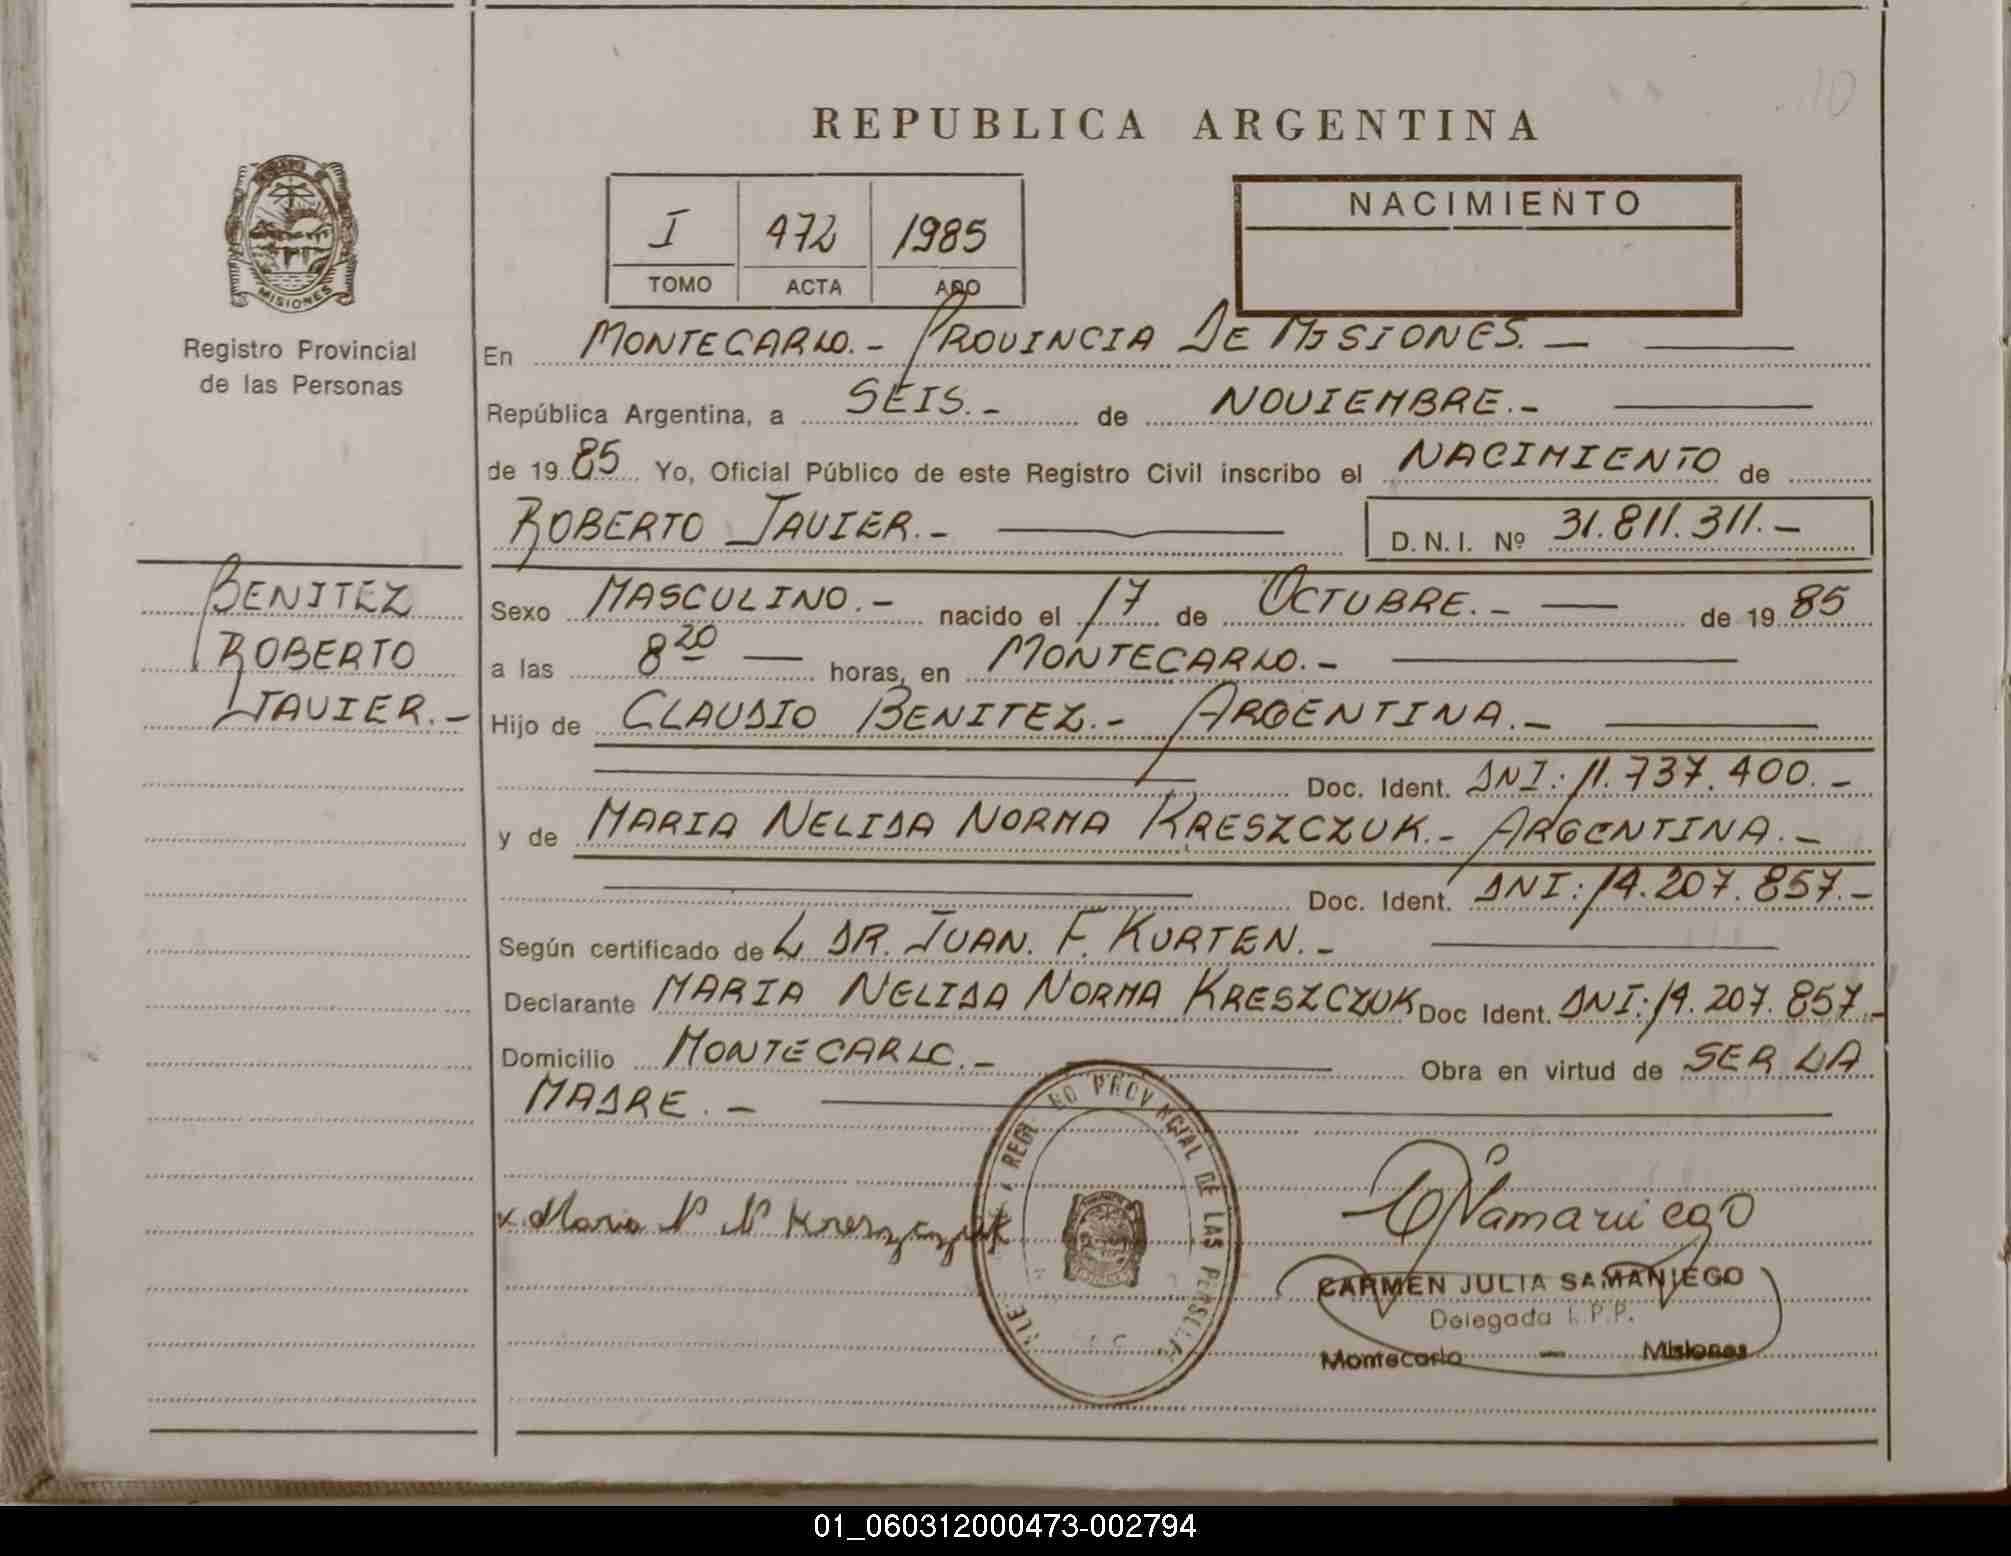 REPUBLICA ARGENTINA
MISIONES
Registro Provincial
de las Personas
I 472 1985
TOMO ACTA AÑO
NACIMIENTO
En MONTECARLO.- PROVINCIA DE MISIONES. —
República Argentina, a SEIS.- de NOVIEMBRE.-
de 19 85 Yo, Oficial Público de este Registro Civil inscribo el NACIMIENTO de
ROBERTO JAVIER.- D.N.I. Nº 31.811.311.-
BENITEZ
ROBERTO
JAVIER.-
Sexo MASCULINO.- nacido el 17 de OCTUBRE.- — de 19 85
a las 8 20 — horas, en MONTECARLO.-
Hijo de CLAUDIO BENITEZ.- ARGENTINA.-
Doc. Ident. DNI: 11.737.400.-
y de MARIA NELIDA NORMA KRESZCZUK.- ARGENTINA.-
Doc. Ident. DNI: 14.207.857.-
Según certificado de L DR. JUAN. F. KURTEN.-
Declarante MARIA NELIDA NORMA KRESZCZUK Doc Ident. DNI: 14.207.857.-
Domicilio MONTECARLO.- Obra en virtud de SER LA
MADRE.-
REGISTRO PROVINCIAL DE LAS PERSONAS
x Maria N N Kreszczuk
CARMEN JULIA SAMANIEGO
Delegada R.P.P.
Montecarlo — Misiones
01_060312000473-002794